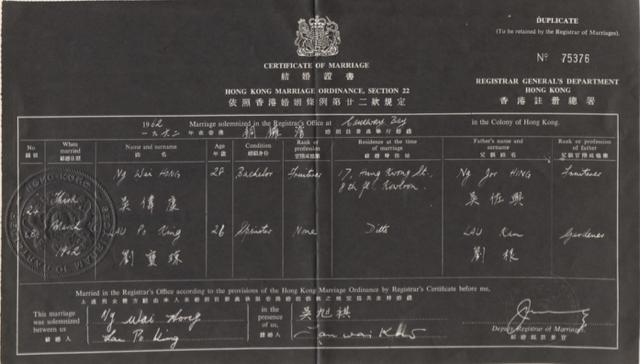 DUPLICATE
(To be retained by the Registrar of Marriages).
Nº 75376
CERTIFICATE OF MARRIAGE
結婚證書
HONG KONG MARRIAGE ORDINANCE, SECTION 22
依照香港婚姻條例第廿二欵規定
REGISTRAR GENERAL'S DEPARTMENT
HONG KONG
香港註冊總署
1962 Marriage solemnized in the Registrar's Office at Causeway Bay in the Colony of Hong Kong.
一九六二 年在香港 銅鑼灣
No. When married Name and surname Age Condition Rank or profession Residence at the time of marriage Father's name and surname Rank or profession of father
號數 結婚日期 姓名 年歲 父親姓名
Ng Wai HONG 28 Bachelor 17, Hung Kwong St., Kowloon. Ng Jor HING
吳偉康 吳佐興
March 1962
LAU Po King 26 Spinster None Ditto LAU Kan Gardener
劉寶瑧 劉根
Married in the Registrar's Office according to the provisions of the Hong Kong Marriage Ordinance by Registrar's Certificate before me,
This marriage was solemnized between us
結婚人
Ng Wai Hong
Lau Po King
in the presence of us,
證婚人
吳旭祺
Deputy Registrar of Marriages.